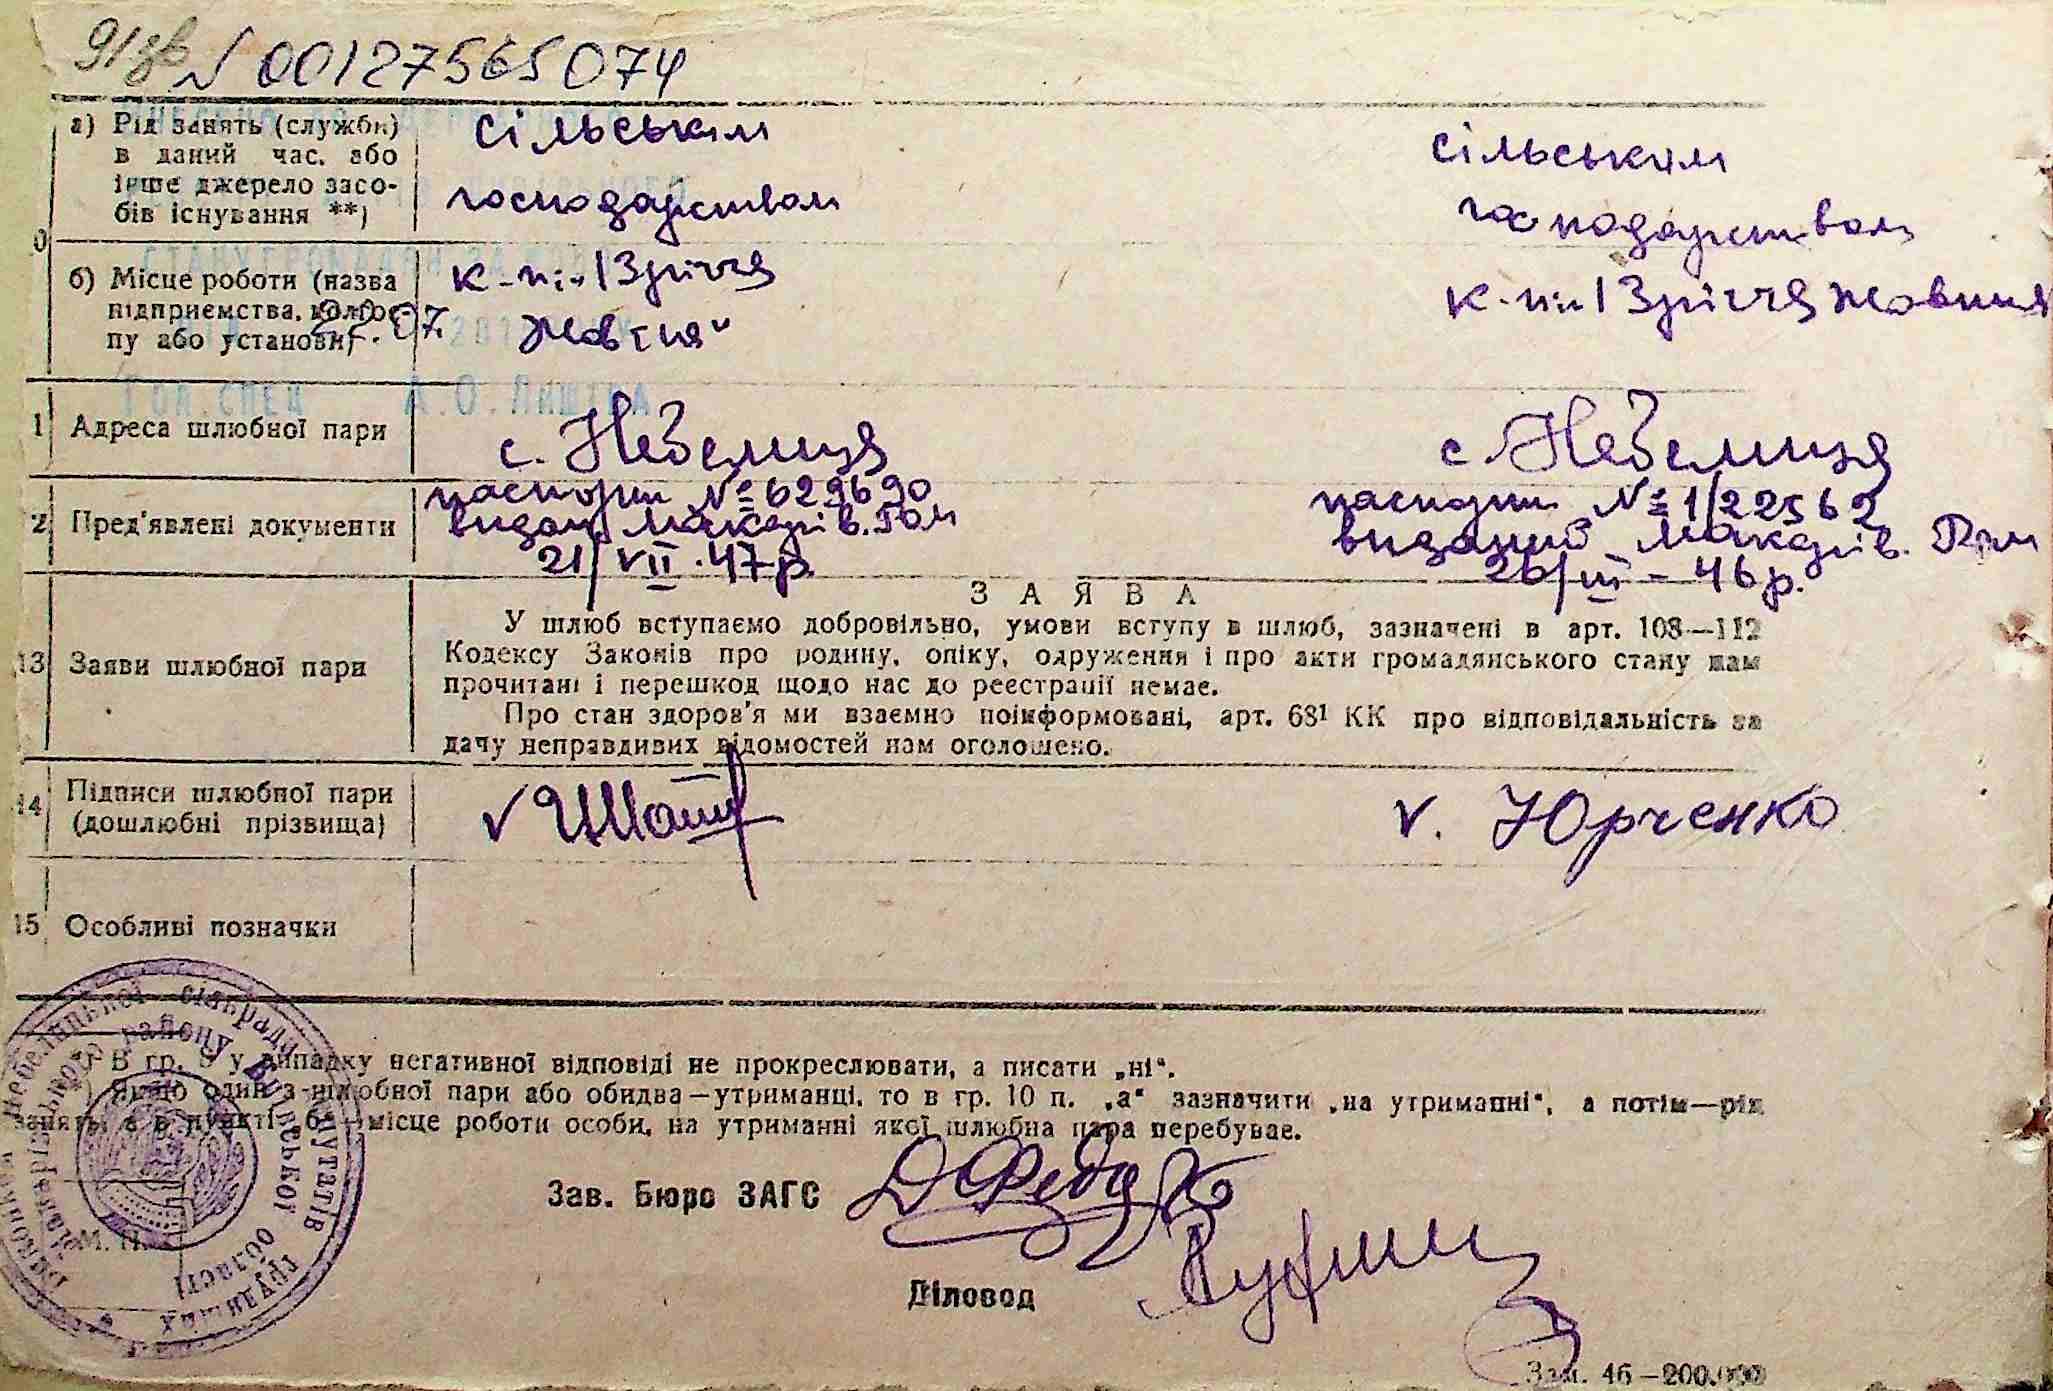 № 00127565074
а) Рід занять (служби) в даний час, або інше джерело засобів існування **)
сільським
господарством
сільським
господарством
б) Місце роботи (назва підприємства, колгоспу або установи)
22.07.
к-п ім 13 річчя
Жовтня"
к-п ім 13 річчя Жовтня
Гол.спец А.О.
1 Адреса шлюбної пари
с. Небелиця
с. Небелиця
2 Пред'явлені документи
паспорт № 629690
видан Макарів. Ром
21/VII.47р.
паспорт № 1/22562
виданий Макарів. Ром
26/III-46р.
13 Заяви шлюбної пари
ЗАЯВА
У шлюб вступаємо добровільно, умови вступу в шлюб, зазначені в арт. 108—112
Кодексу Законів про родину, опіку, одруження і про акти громадянського стану нам
прочитані і перешкод щодо нас до реєстрації немає.
Про стан здоров'я ми взаємно поінформовані, арт. 68¹ КК про відповідальність за
дачу неправдивих відомостей нам оголошено.
14 Підписи шлюбної пари
(дошлюбні прізвища)
v
v. Юрченко
15 Особливі позначки
*) В гр. 9 у випадку негативної відповіді не прокреслювати, а писати „ні".
**) Якщо один з шлюбної пари або обидва—утриманці, то в гр. 10 п. „а" зазначити „на утриманні", а потім—рід
занять, а в пункті „б"—місце роботи особи, на утриманні якої шлюбна пара перебуває.
Зав. Бюро ЗАГС
Діловод
М. П.
Виконком Небелицької сільради депутатів трудящих
Макарівського району Київської області
Зам. 46—200.000